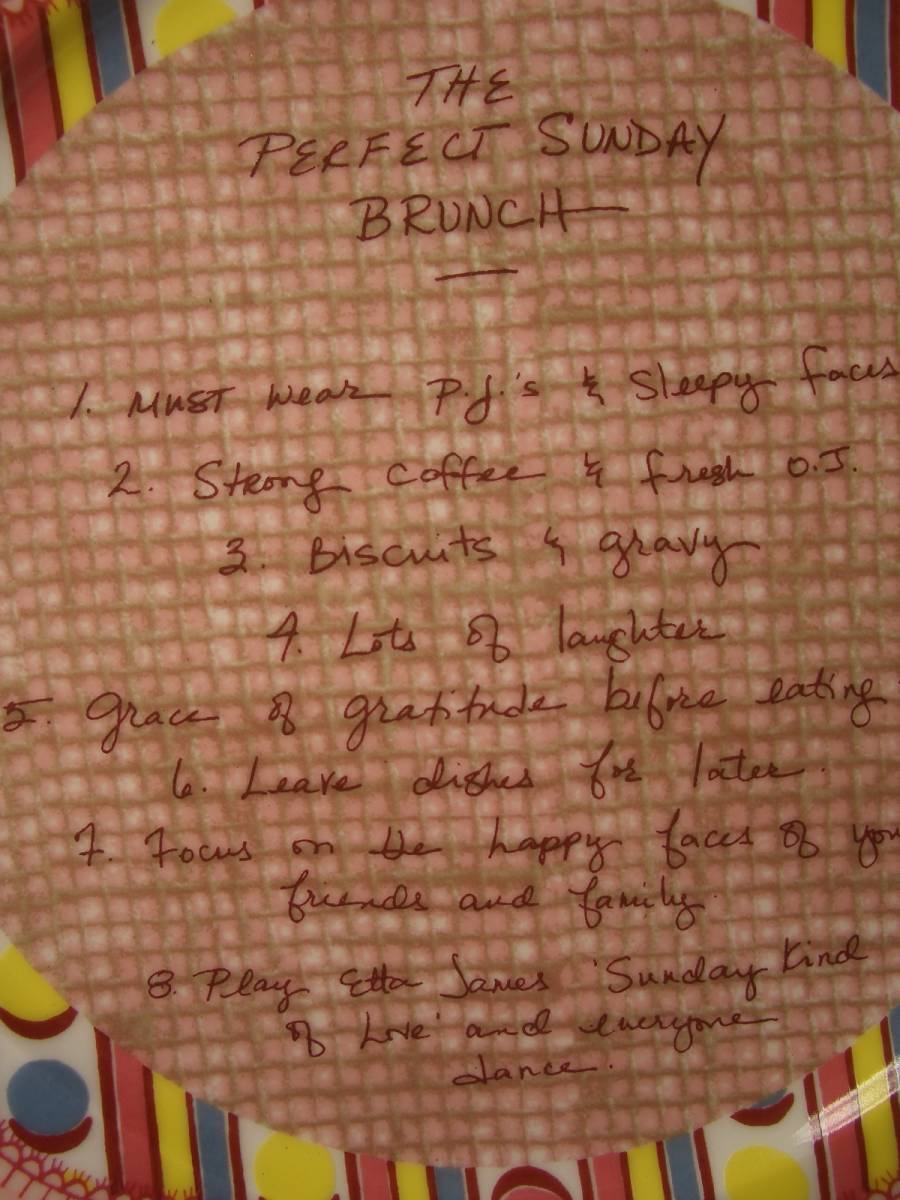 THE
PERFECT SUNDAY
BRUNCH
1. MUST wear P.J.'s & Sleepy faces
2. Strong coffee & fresh O.J.
3. Biscuits & gravy
4. Lots of laughter
5. Grace of gratitude before eating
6. Leave dishes for later.
7. Focus on the happy faces of you
friends and family.
8. Play Etta James 'Sunday Kind
of Love' and everyone
dance.